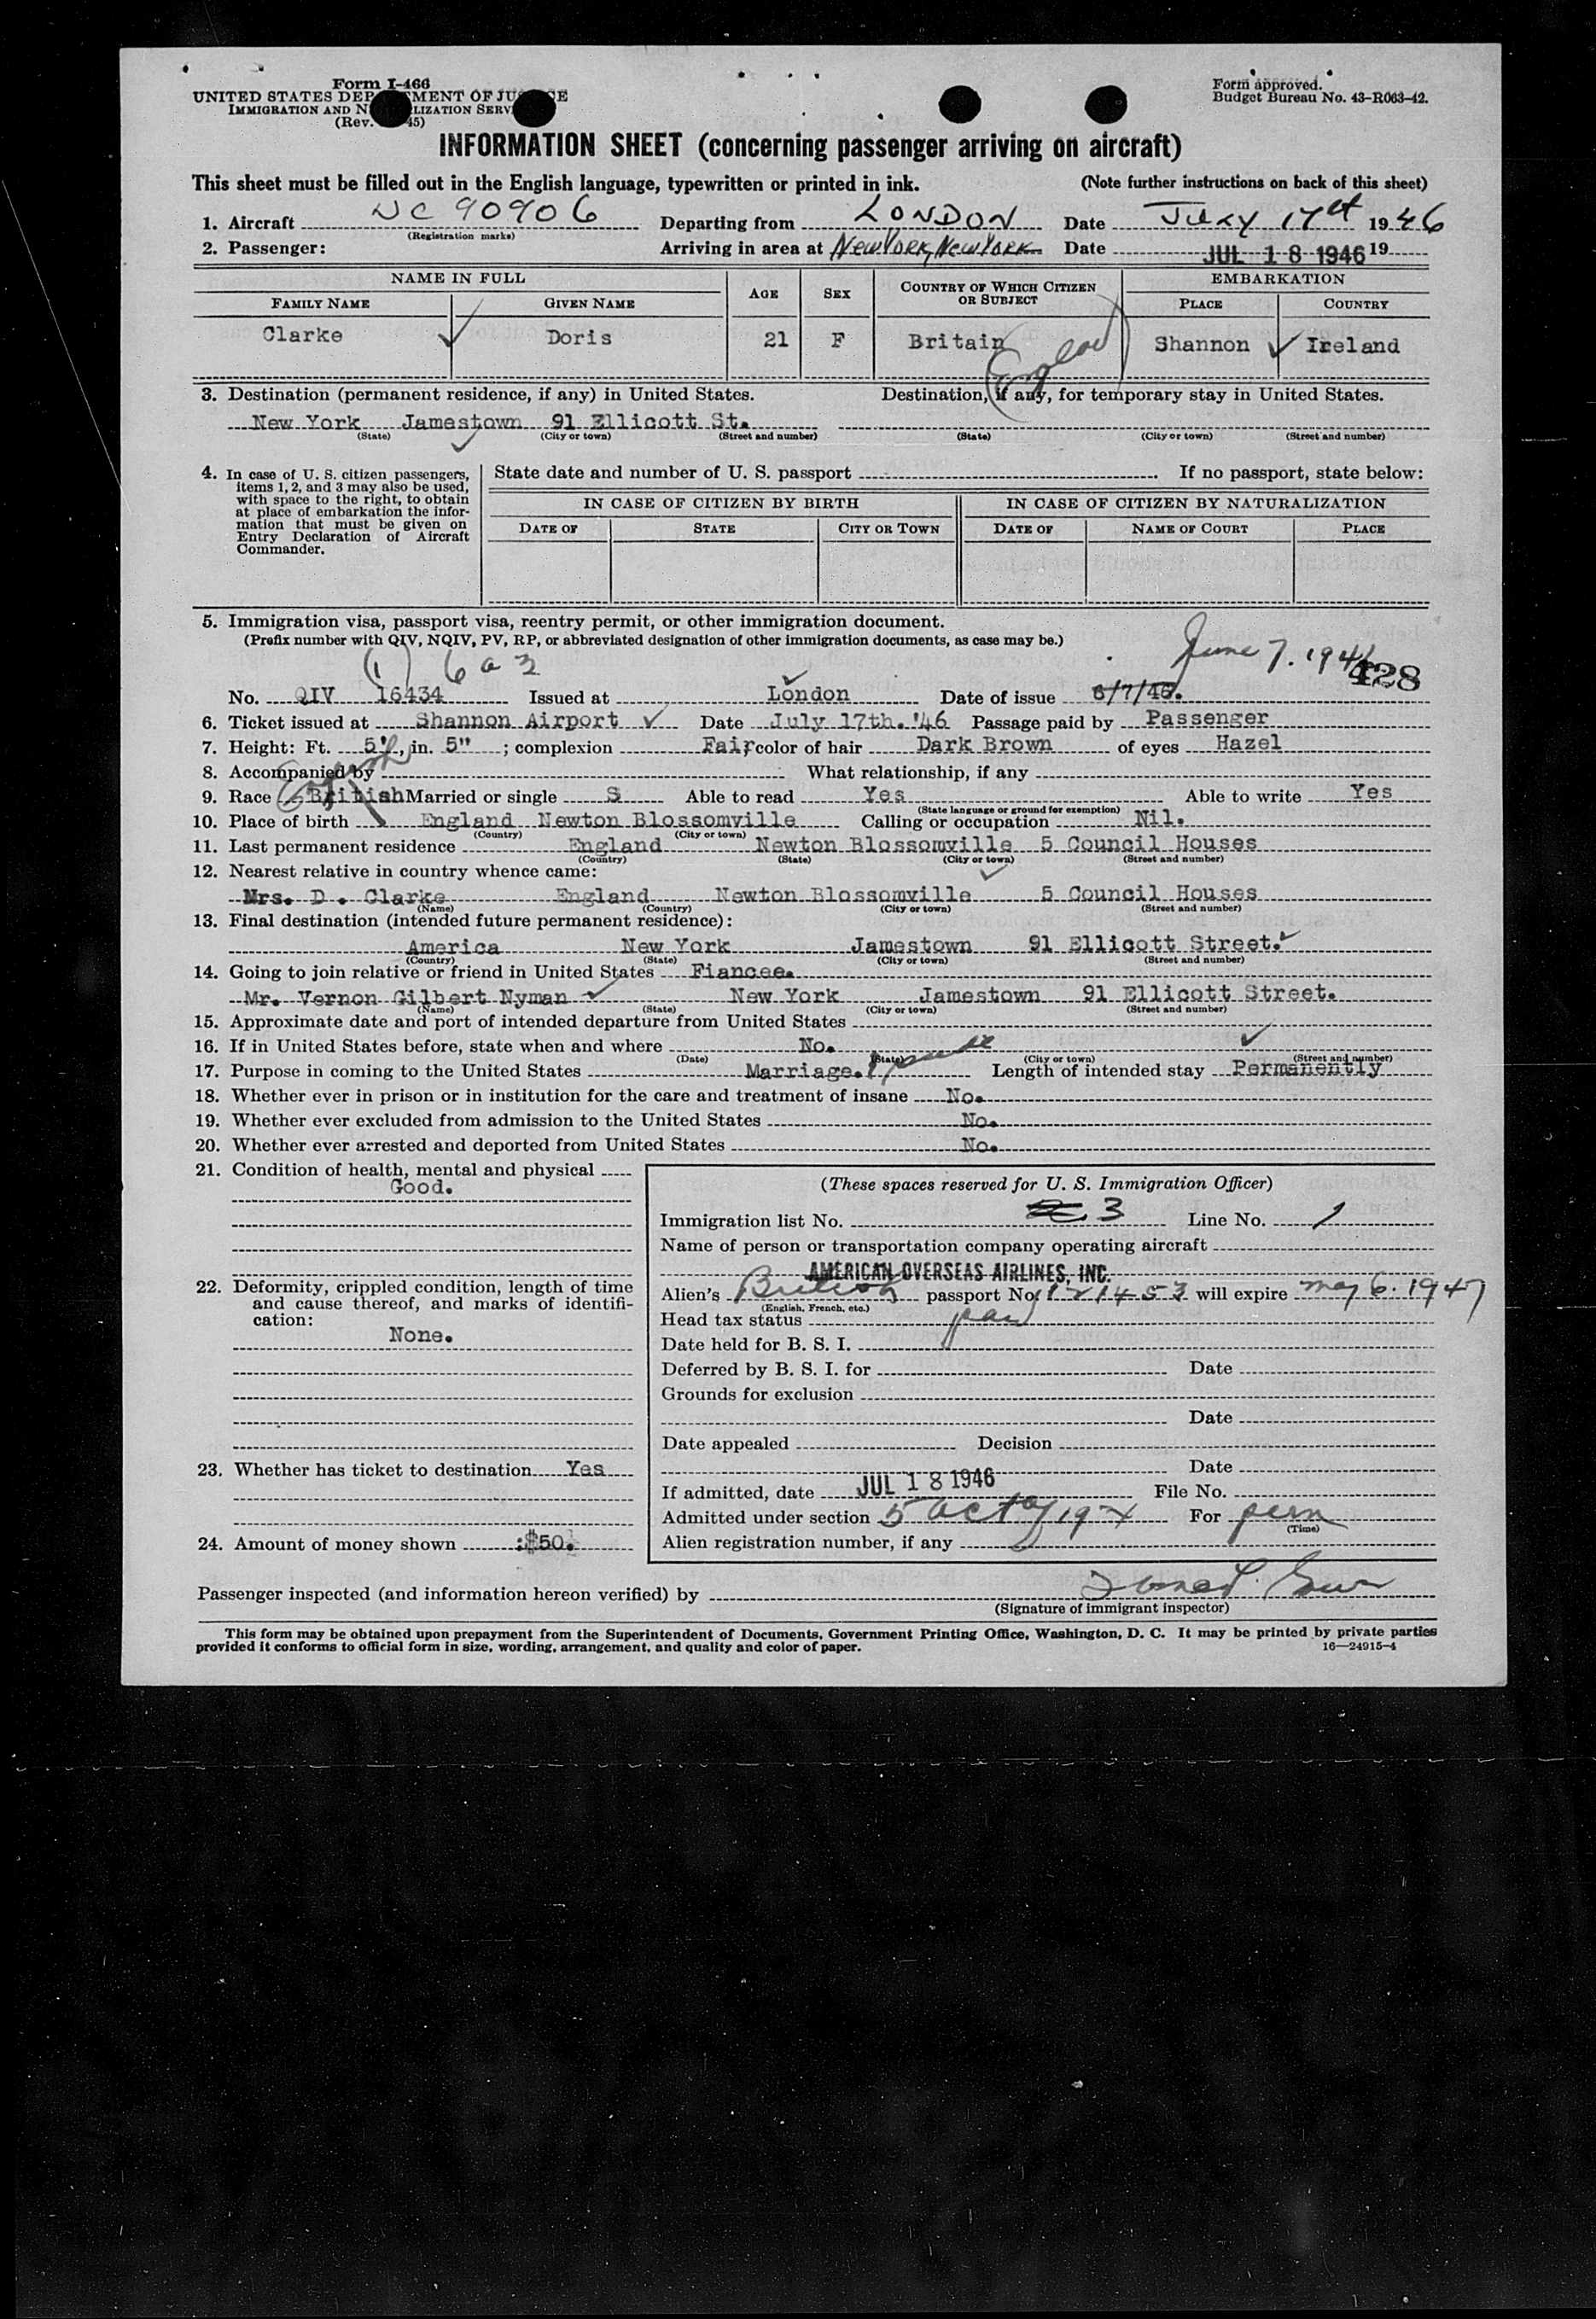 Form I-466
UNITED STATES DEP MENT OF JU E
IMMIGRATION AND N LIZATION SERV
(Rev. 45)
Form approved.
Budget Bureau No. 43-R063-42.
INFORMATION SHEET (concerning passenger arriving on aircraft)
This sheet must be filled out in the English language, typewritten or printed in ink. (Note further instructions on back of this sheet)
1. Aircraft NC 90906 Departing from LONDON Date JULY 17th 1946
(Registration marks)
2. Passenger: Arriving in area at NEW YORK, NEW YORK Date JUL 18 1946 19
NAME IN FULL AGE SEX COUNTRY OF WHICH CITIZEN OR SUBJECT EMBARKATION
FAMILY NAME GIVEN NAME PLACE COUNTRY
Clarke Doris 21 F Britain (England) Shannon Ireland
3. Destination (permanent residence, if any) in United States. Destination, if any, for temporary stay in United States.
New York Jamestown 91 Ellicott St.
(State) (City or town) (Street and number) (State) (City or town) (Street and number)
4. In case of U. S. citizen passengers, items 1, 2, and 3 may also be used, with space to the right, to obtain at place of embarkation the information that must be given on Entry Declaration of Aircraft Commander.
State date and number of U. S. passport If no passport, state below:
IN CASE OF CITIZEN BY BIRTH IN CASE OF CITIZEN BY NATURALIZATION
DATE OF STATE CITY OR TOWN DATE OF NAME OF COURT PLACE
5. Immigration visa, passport visa, reentry permit, or other immigration document.
(Prefix number with QIV, NQIV, PV, RP, or abbreviated designation of other immigration documents, as case may be.)
(1) 6 a 3 June 7. 1946 428
No. QIV 16434 Issued at London Date of issue 6/7/46.
6. Ticket issued at Shannon Airport Date July 17th. '46 Passage paid by Passenger
7. Height: Ft. 5', in. 5" ; complexion Fair, color of hair Dark Brown of eyes Hazel
8. Accompanied by What relationship, if any
9. Race British (English) Married or single S Able to read Yes Able to write Yes
(State language or ground for exemption)
10. Place of birth England Newton Blossomville Calling or occupation Nil.
(Country) (City or town)
11. Last permanent residence England Newton Blossomville 5 Council Houses
(Country) (State) (City or town) (Street and number)
12. Nearest relative in country whence came:
Mrs. D . Clarke England Newton Blossomville 5 Council Houses
(Name) (Country) (City or town) (Street and number)
13. Final destination (intended future permanent residence):
America New York Jamestown 91 Ellicott Street.
(Country) (State) (City or town) (Street and number)
14. Going to join relative or friend in United States Fiancee.
Mr. Vernon Gilbert Nyman New York Jamestown 91 Ellicott Street.
(Name) (State) (City or town) (Street and number)
15. Approximate date and port of intended departure from United States
16. If in United States before, state when and where No.
(Date) (State) (City or town) (Street and number)
17. Purpose in coming to the United States Marriage. Length of intended stay Permanently
18. Whether ever in prison or in institution for the care and treatment of insane No.
19. Whether ever excluded from admission to the United States No.
20. Whether ever arrested and deported from United States No.
21. Condition of health, mental and physical
Good.
22. Deformity, crippled condition, length of time and cause thereof, and marks of identification:
None.
23. Whether has ticket to destination Yes
24. Amount of money shown :$50.
(These spaces reserved for U. S. Immigration Officer)
Immigration list No. 3 Line No. 1
Name of person or transportation company operating aircraft
AMERICAN OVERSEAS AIRLINES, INC.
Alien's British passport No. 121453 will expire May 6. 1947
(English, French, etc.)
Head tax status paid
Date held for B. S. I.
Deferred by B. S. I. for Date
Grounds for exclusion
Date
Date appealed Decision
Date
If admitted, date JUL 18 1946 File No.
Admitted under section 5 act of 1924 For perm
(Time)
Alien registration number, if any
Passenger inspected (and information hereon verified) by
(Signature of immigrant inspector)
This form may be obtained upon prepayment from the Superintendent of Documents, Government Printing Office, Washington, D. C. It may be printed by private parties
provided it conforms to official form in size, wording, arrangement, and quality and color of paper. 16—24915-4